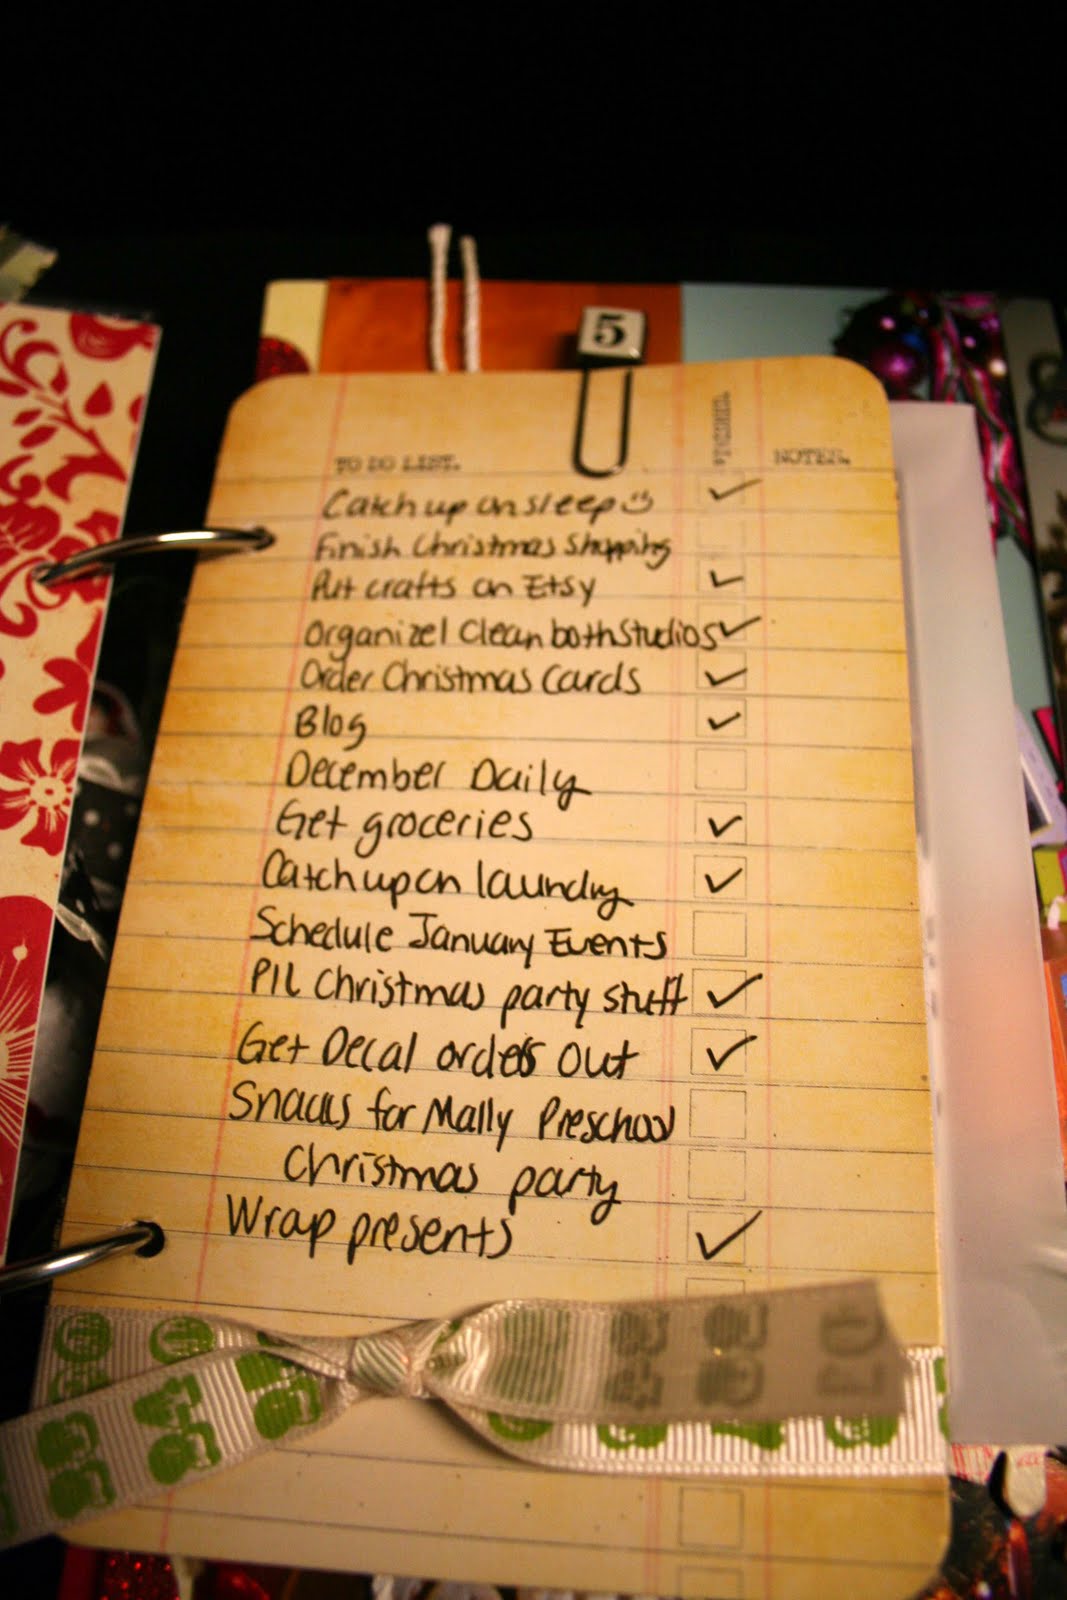 5
TO DO LIST.
NOTES.
Catch up on sleep
Finish Christmas Shopping
Put crafts on Etsy
Organize/ Clean both studios
Order Christmas Cards
Blog
December Daily
Get groceries
Catch up on laundry
Schedule January Events
PIL Christmas party stuff
Get Decal orders out
Snacks for Mally Preschool
Christmas party
Wrap presents